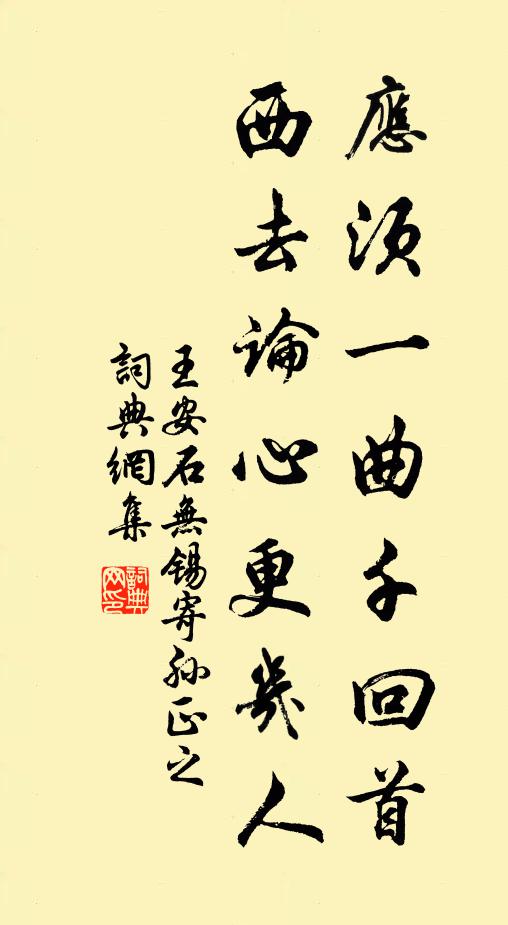 應須一曲千回首
西去論心更幾人
王安石無錫寄孫正之
詞典網集
詞典網印